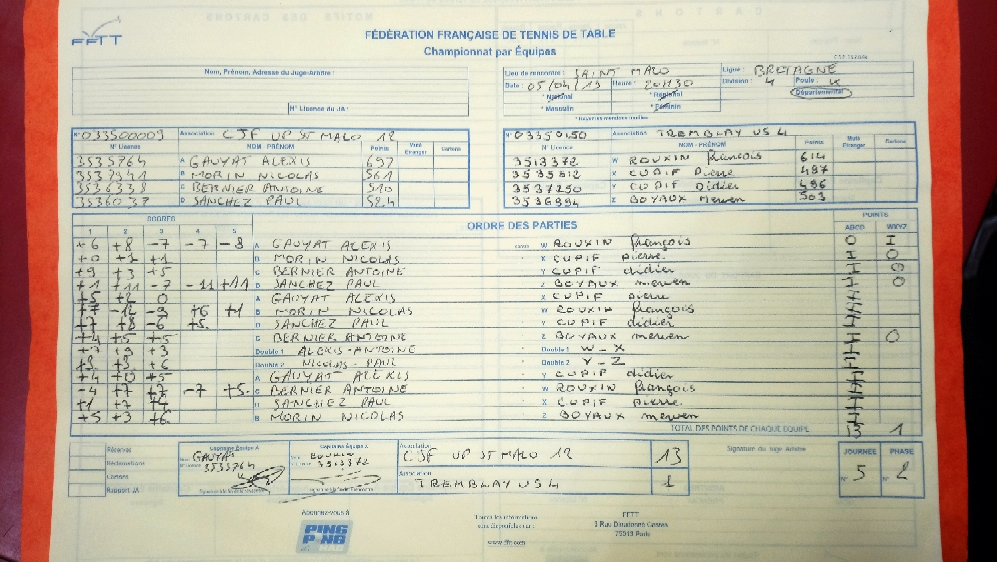 FFTT
FÉDÉRATION FRANÇAISE DE TENNIS DE TABLE
Championnat par Équipes
Nom, Prénom, Adresse du Juge-Arbitre :
N° Licence du JA :
Lieu de rencontre : SAINT MALO
Ligne : BRETAGNE
Date : 05/04/19 Heure : 20H30
Division : 4 Poule : K
* National * Régional Départemental
* Masculin * Féminin
* Rayer les mentions inutiles
N° 033500009 Association : CJF UP ST MALO 12
N° Licence NOM - PRÉNOM Points Muté Etranger Cartons
3535764 A GAUYAT ALEXIS 697
3537941 B MORIN NICOLAS 561
3536338 C BERNIER ANTOINE 510
3536037 D SANCHEZ PAUL 524
N° 03350150 Association TREMBLAY US 4
N° Licence NOM - PRÉNOM Points Muté Etranger Cartons
3513372 W ROUXIN françois 614
3535512 X CUPIF Pierre 487
3537250 Y CUPIF Didier 496
3536994 Z BOYAUX Merwen 503
SCORES ORDRE DES PARTIES POINTS
1 2 3 4 5 ABCD WXYZ
+6 +8 -7 -7 -8 A GAUYAT ALEXIS W ROUXIN françois 0 H
+0 +2 +1 B MORIN NICOLAS X CUPIF pierre H 0
+9 +3 +5 C BERNIER ANTOINE Y CUPIF didier H 0
+1 +11 -7 -11 +11 D SANCHEZ PAUL Z BOYAUX merwen H 0
+5 +2 0 A GAUYAT ALEXIS X CUPIF pierre H
+7 -12 -9 +6 +1 B MORIN NICOLAS W ROUXIN françois H
+7 +8 -6 +5 D SANCHEZ PAUL Y CUPIF didier H
+4 +5 +5 C BERNIER ANTOINE Z BOYAUX merwen H 0
+9 +3 Double 1 ALEXIS - ANTOINE Double 1 W - X H
+6 Double 2 NICOLAS - PAUL Double 2 Y - Z H
+4 +10 +5 A GAUYAT ALEXIS Y CUPIF didier H
+4 +7 +7 -7 +5 C BERNIER ANTOINE W ROUXIN françois H
+7 D SANCHEZ PAUL X CUPIF pierre H
+5 +3 +6 B MORIN NICOLAS Z BOYAUX merwen H
TOTAL DES POINTS DE CHAQUE EQUIPE 13 1
Réserves
Réclamations
Cartons
Rapport JA
Capitaine Équipe A
GAUYAT
3535764
Capitaine Équipe X
ROUXIN
3513372
Association
CJF UP ST MALO 12 13
Association
TREMBLAY US 4 1
Signature du Juge Arbitre
JOURNÉE PHASE
N° 5 N° 2
Abonnez-vous à
PING PONG MAG
Toutes les informations
sont disponibles sur :
www.fftt.com
FFTT
3 Rue Dieudonné Costes
75013 Paris